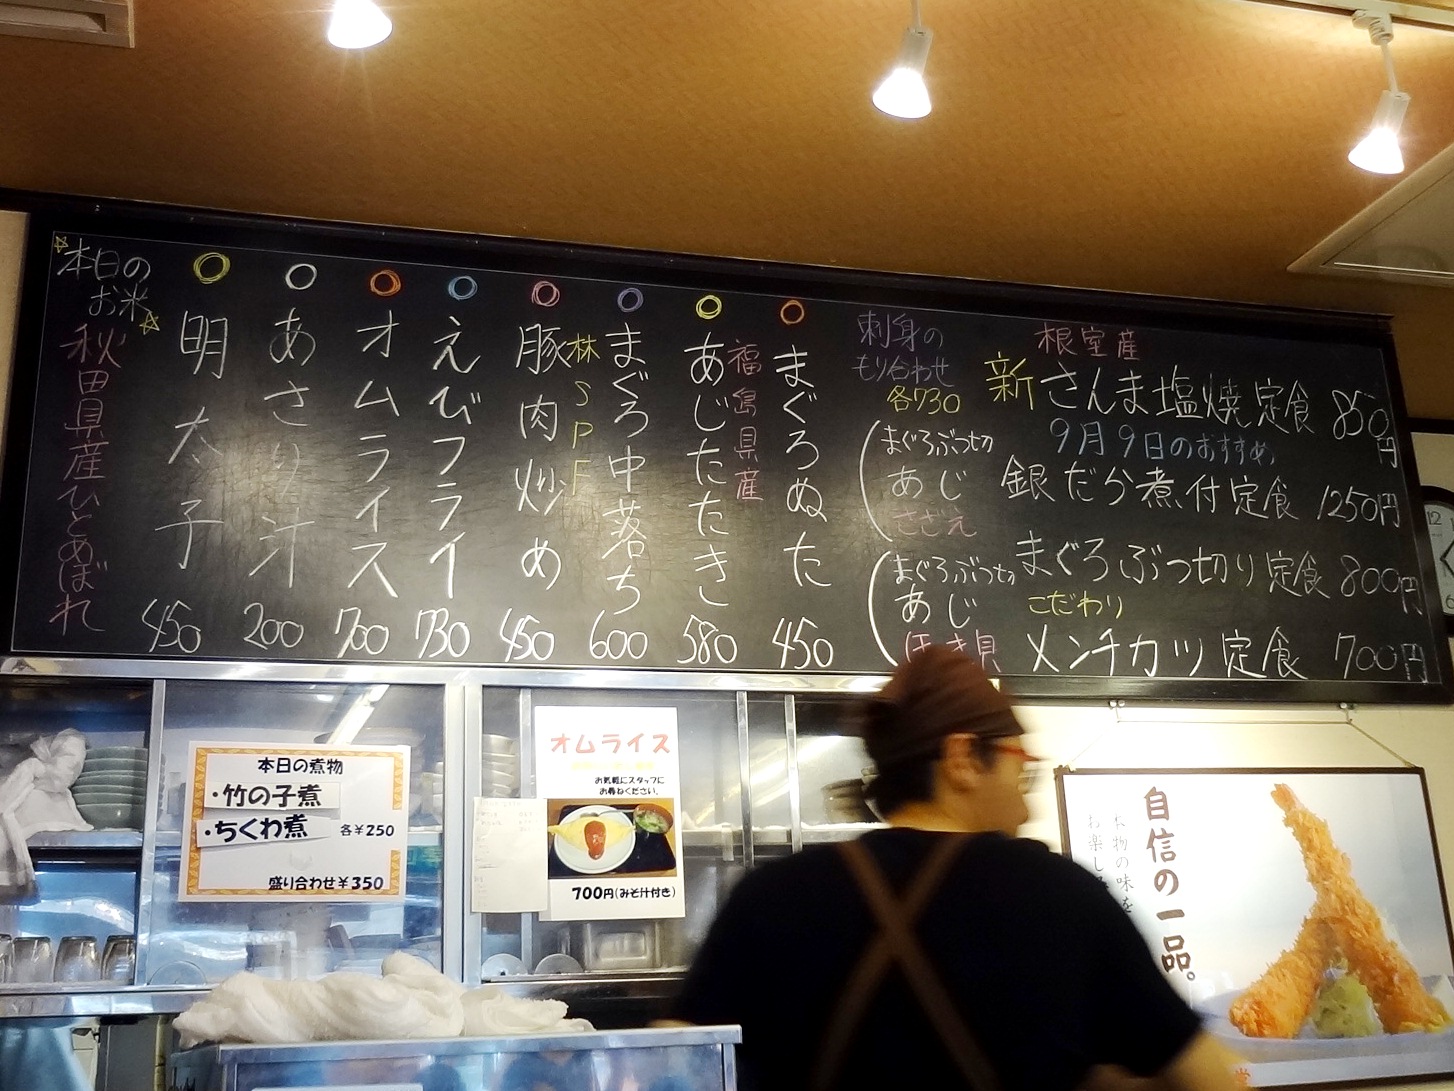 根室産
新さんま塩焼定食 850円
9月9日のおすすめ
銀だら煮付定食 1250円
まぐろぶつ切り定食 800円
こだわり
メンチカツ定食 700円
刺身の
もり合わせ
各730
まぐろぶつ切
あじ
さざえ
まぐろぶつ切
あじ
ほっき貝
まぐろぬた 450
福島県産
あじたたき 580
まぐろ中落ち 600
林SPF
豚肉炒め 450
えびフライ 730
オムライス 700
あさり汁 200
明太子 450
本日の
お米
秋田県産ひとめぼれ
本日の煮物
・竹の子煮
・ちくわ煮
各¥250
盛り合わせ¥350
オムライス
お気軽にスタッフに
お尋ねください。
700円(みそ汁付き)
自信の一品。
本物の味を
お楽し
12
6